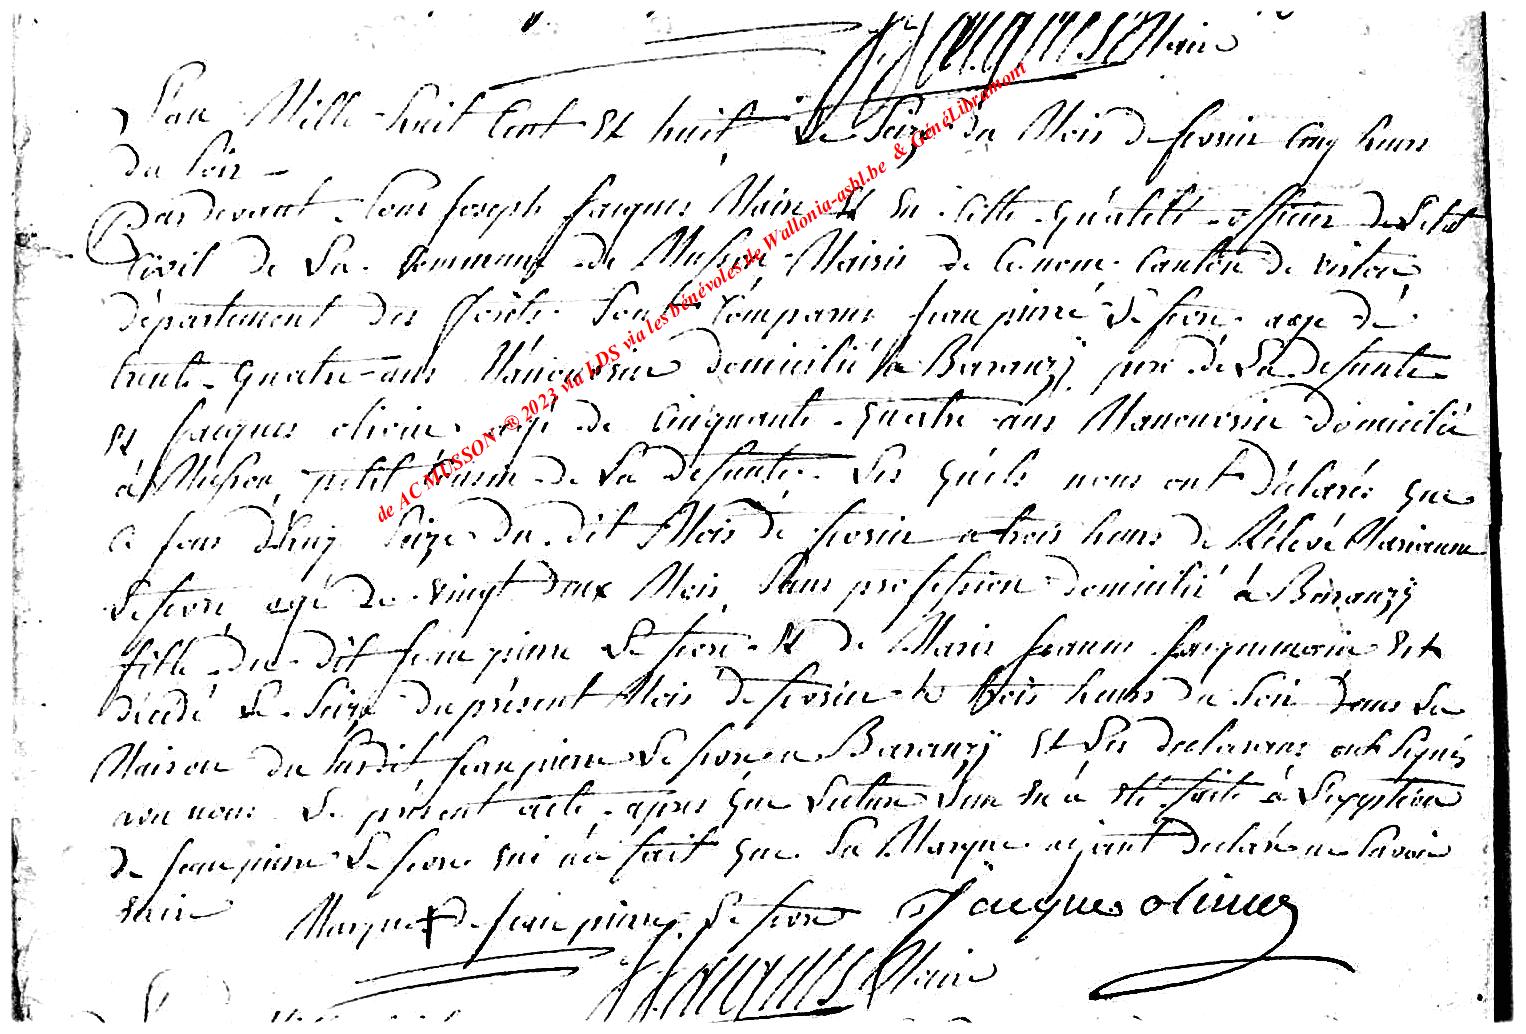 J. Jacques Maire
L'an Mille huit Cent et huit Le Seize du Mois de fevrier Cinq heures
du soir
Pardevant Nous Joseph Jacques Maire et en cette qualité officier de Letat
Civil de La Commune de Musson Mairie de Ce nom Canton de virton
département des forêts Sont Comparus jean pierre Lefevre agé de
trente quatre ans Manouvrier domicilié à Baranzÿ pere de La defunte
et jacques olivier agé de Cinquante quatre ans Manouvrier domicilié
à Musson petit Cousin de La defunte Les quels nous ont déclarés que
Ce jour d'huy Seize du dit Mois de fevrier a trois heures de Rélévé Marianne
Lefevre agé de vingt deux Mois Sans profession domicilié à Baranzÿ
fille du dit jean pierre Lefevre et de Marie jeanne jacquemain est
décédé Le Seize du présent Mois de fevrier à trois heures du Soir dans La
Maison du Susdit jean pierre Lefevre a Baranzÿ et Les declarans ont Signés
avec nous Le présent acte apres que Lecture Leur en à été faite à Lexeption
de jean pierre Lefevre qui n'a fait que Sa Marque ayant declaré ne Savoir
Marque de jean pierre Lefevre Jacques olivier
J. Jacques Maire
de AC MUSSON -® 2023 via LDS via les bénévoles de Wallonia-asbl.be & GénéLibramont